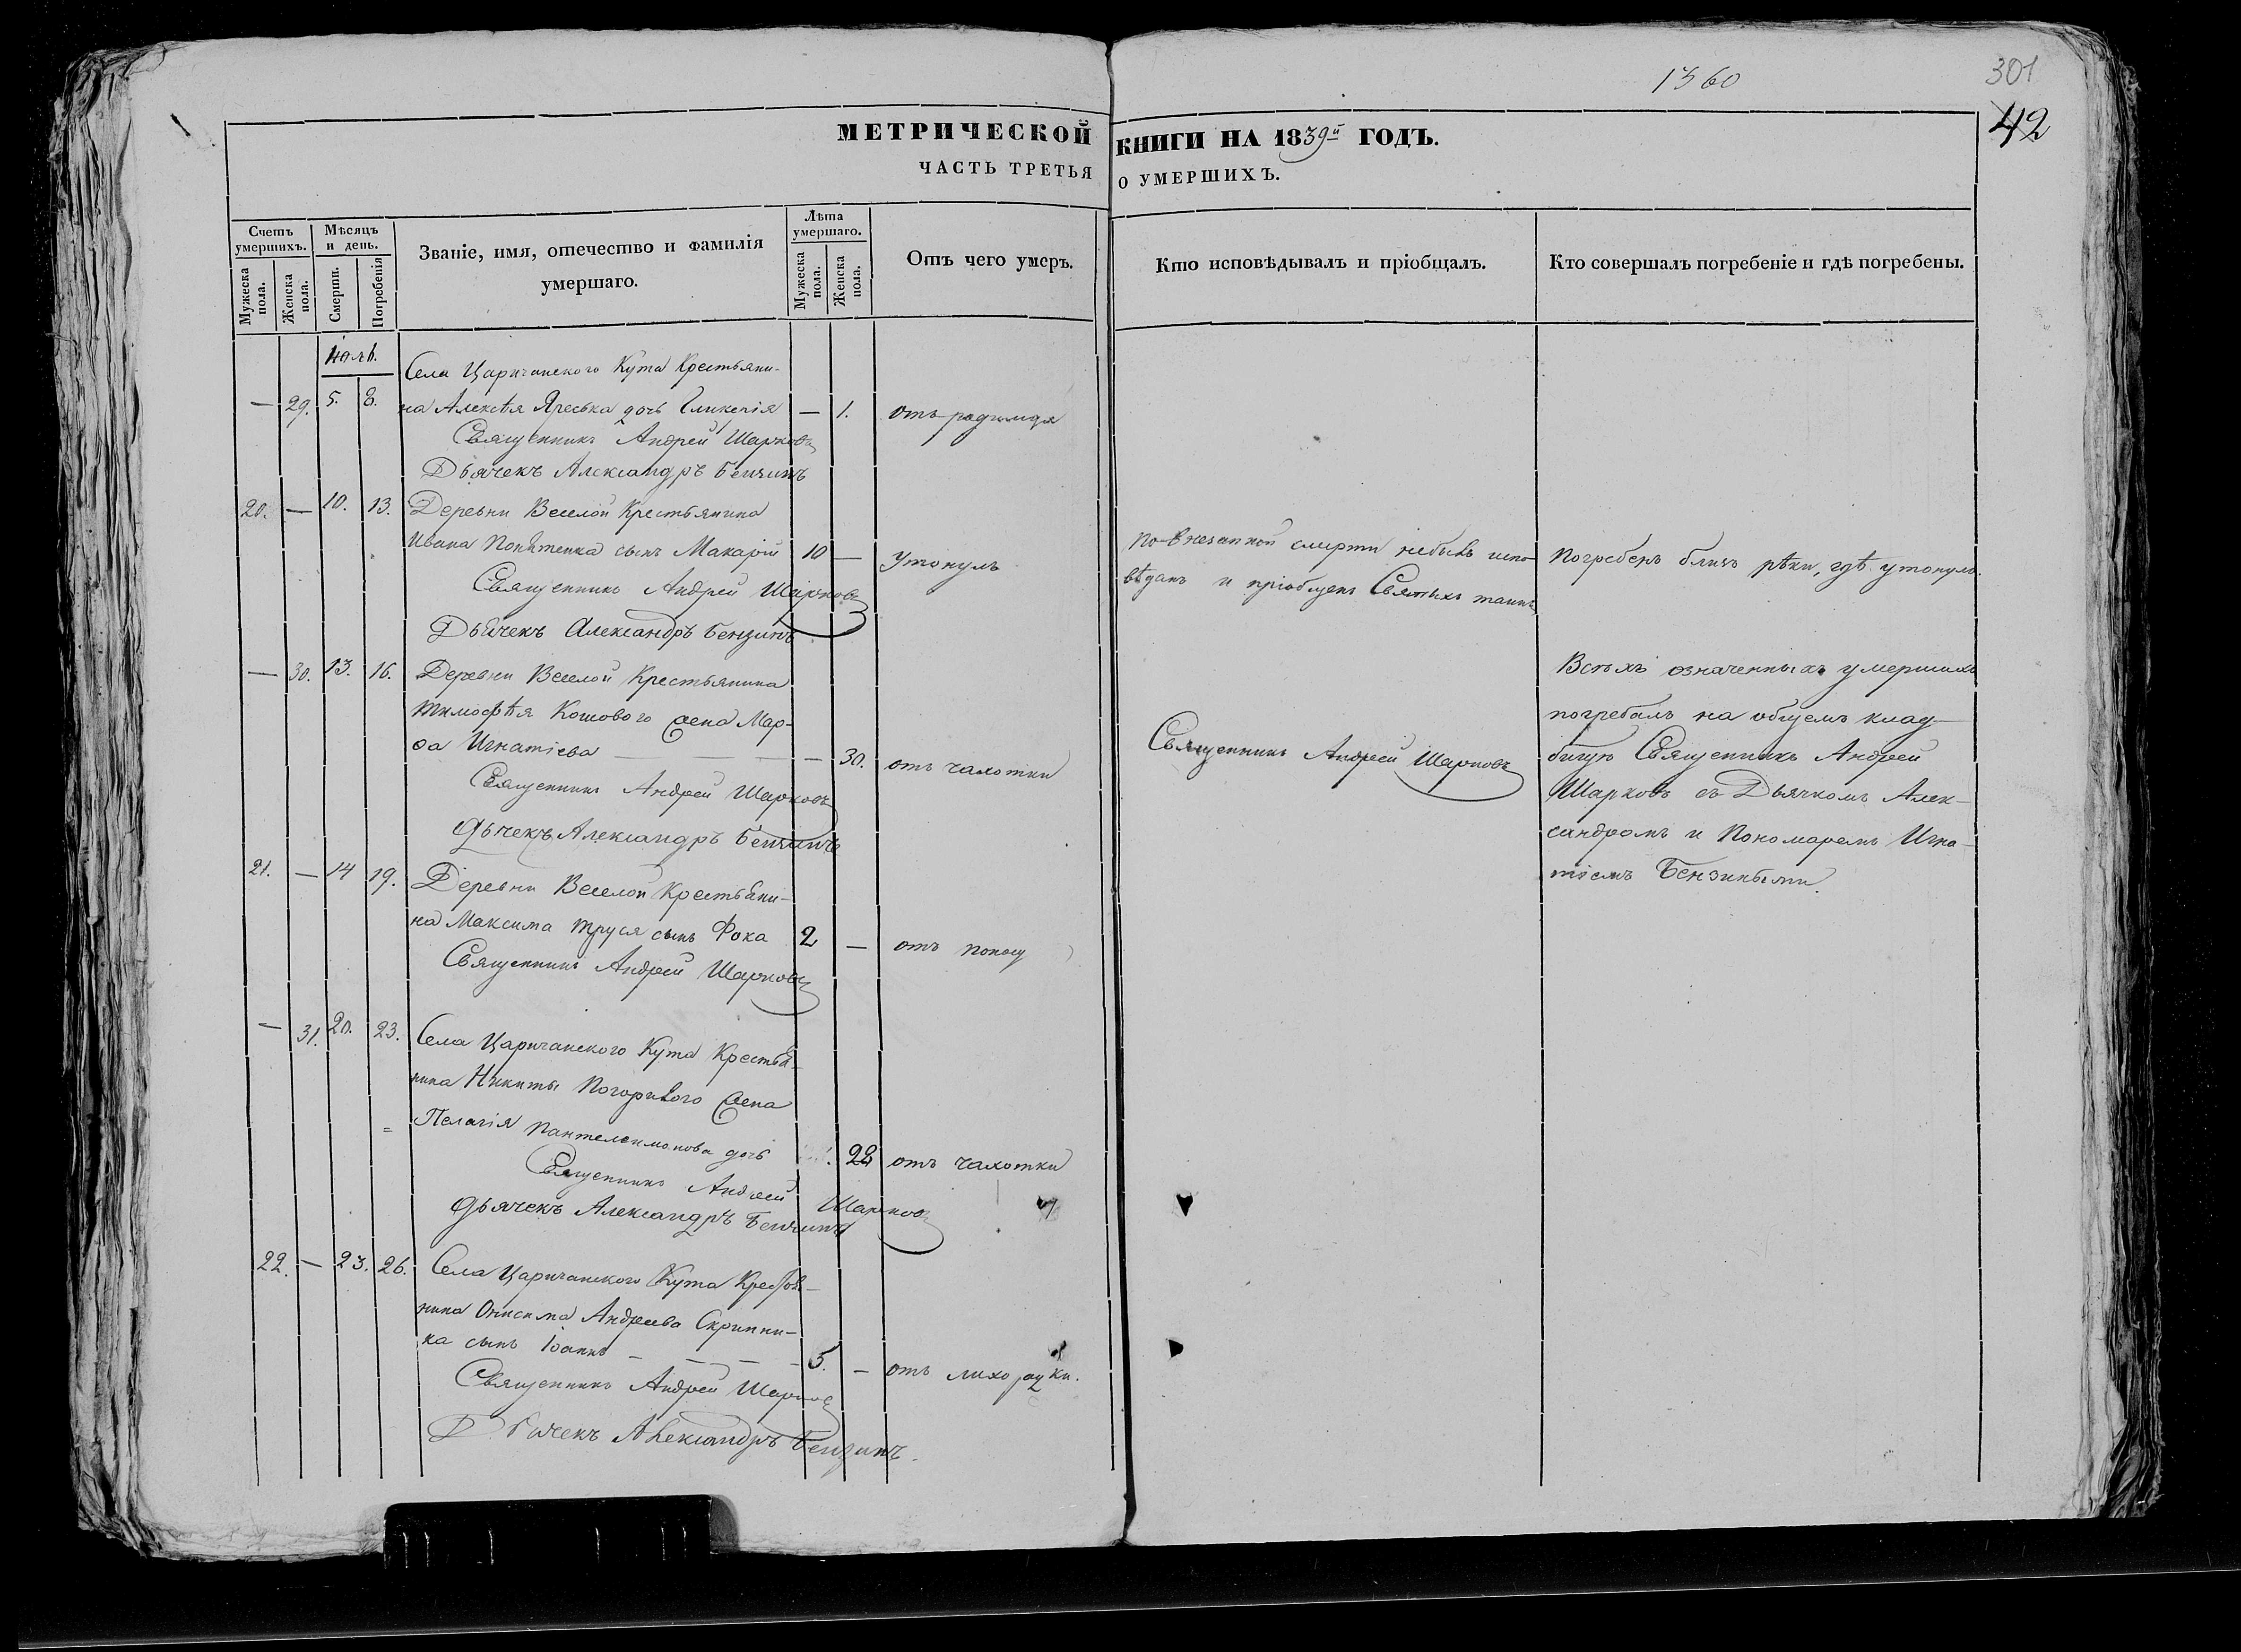 1360
301
42
МЕТРИЧЕСКОЙ КНИГИ НА 1839й ГОДЪ.
ЧАСТЬ ТРЕТЬЯ О УМЕРШИХЪ.
Счетъ умершихъ.
Мужеска пола.
Женска пола.
Мѣсяцъ и день.
Смерти.
Погребенія
Званіе, имя, отечество и фамилія умершаго.
Лѣта умершаго.
Мужеска пола.
Женска пола.
Отъ чего умеръ.
Кто исповѣдывалъ и пріобщалъ.
Кто совершалъ погребеніе и гдѣ погребены.
Села Царичанского Кута Крестьяни-
— 29. 5. 8. на Алексѣя Яреська дочь Гликерія — 1. отъ родимца
Священникъ Андрей Шарковъ
Дьячекъ Александръ Бензинъ
20. — 10. 13. Деревни Веселой Крестьянина
Ивана сынъ Макарій 10 — Утонулъ
Священникъ Андрей Шарковъ
Дьячекъ Александръ Бензинъ
По внезапной смерти небылъ испо-
вѣданъ и пріобщенъ Святыхъ таинъ
Погребенъ близъ рѣки, гдѣ утонулъ.
— 30. 13. 16. Деревни Веселой Крестьянина
Тимофѣя Кошового жена Мар-
ѳа Игнатіева — — 30. отъ чахотки
Священникъ Андрей Шарковъ
Дьячекъ Александръ Бензинъ
Священникъ Андрей Шарковъ
Всѣхъ означенныхъ умершихъ
погребалъ на общемъ клад-
бищѣ Священникъ Андрей
Шарковъ съ Дьячкомъ Алек-
сандромъ и Пономаремъ Игна-
тіемъ Бензиными.
21. — 14 19. Деревни Веселой Крестьяни-
на Максима Труся сынъ Фока 2 — отъ поносу
Священникъ Андрей Шарковъ
— 31. 20. 23. Села Царичанского Кута Крестья-
нина Никиты Погорилого жена
Пелагія Пантелеимонова дочь 28 отъ чахотки
Священникъ Андрей Шарковъ
Дьячекъ Александръ Бензинъ
22. — 23. 26. Села Царичанского Кута Крестья-
нина Онисима Андреева Скрипни-
ка сынъ Іоаннъ — 5. — отъ лихорадки.
Священникъ Андрей Шарковъ
Дьячекъ Александръ Бензинъ.